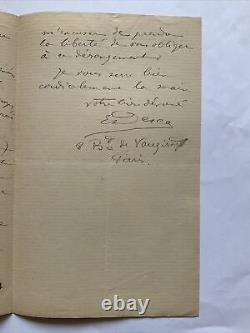 m'excuser de prendre
la liberté de vous obliger
à ce dérangement
Je vous serre bien
cordialement la main
votre bien dévoué
8 Bd de Vaugirard
Paris.
thumbimg.com